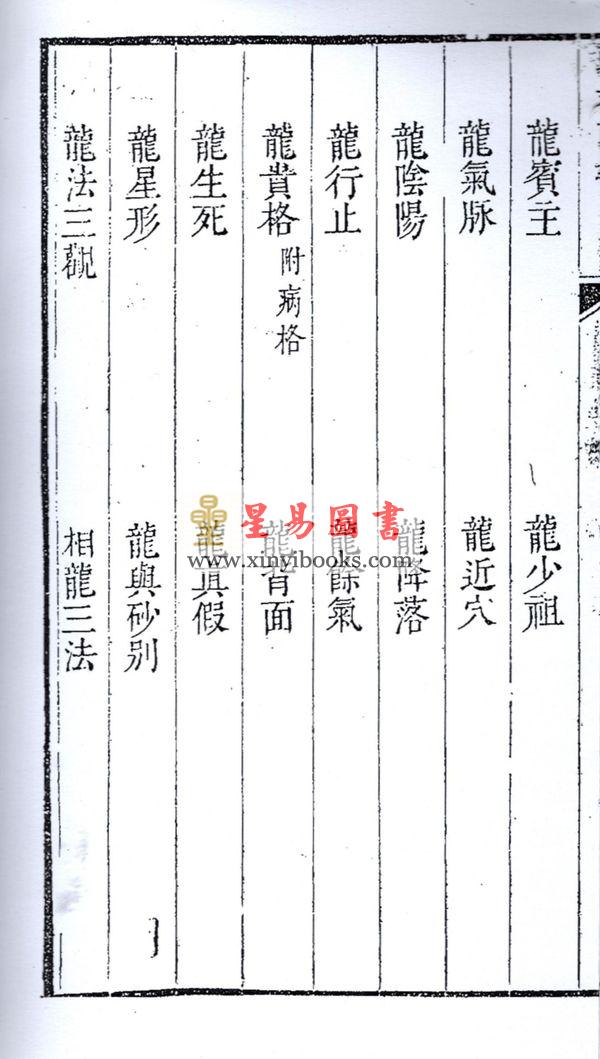 龍賓主 龍少祖
龍氣脉 龍近穴
龍陰陽 龍降落
龍行止 龍餘氣
龍貴格 附病格 龍背面
龍生死 龍真假
龍星形 龍與砂別
龍法三觀 相龍三法
星易圖書
www.xinyibooks.com